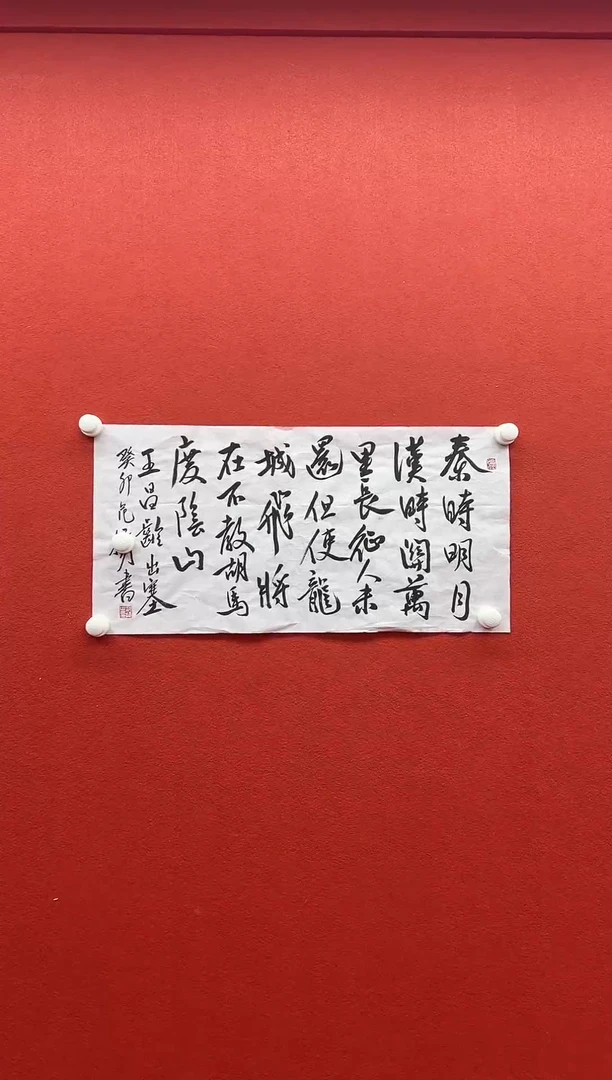 秦時明月
漢時關萬
里長征人未
還但使龍
城飛將
在不教胡馬
度陰山
王昌齡出塞
癸卯 書